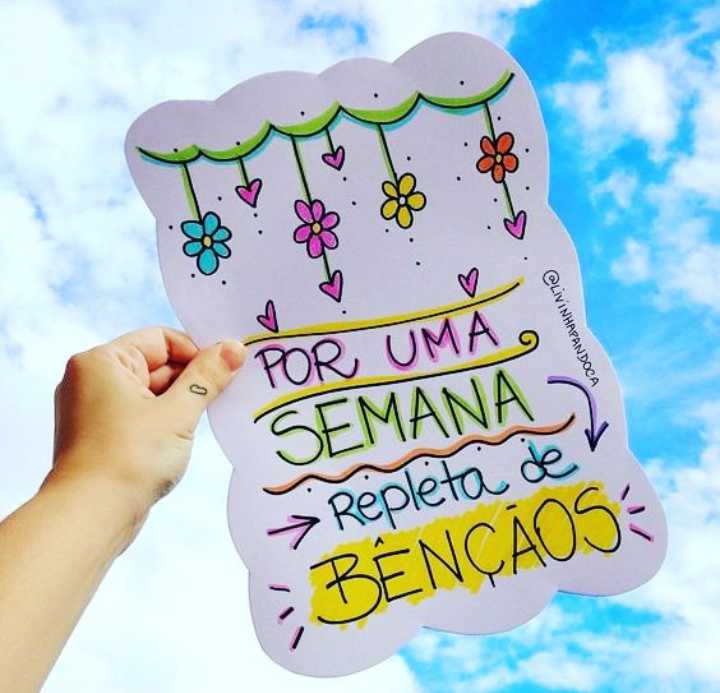 POR UMA
SEMANA
Repleta de
BÊNÇÃOS
@LIVINHAPANDOCA